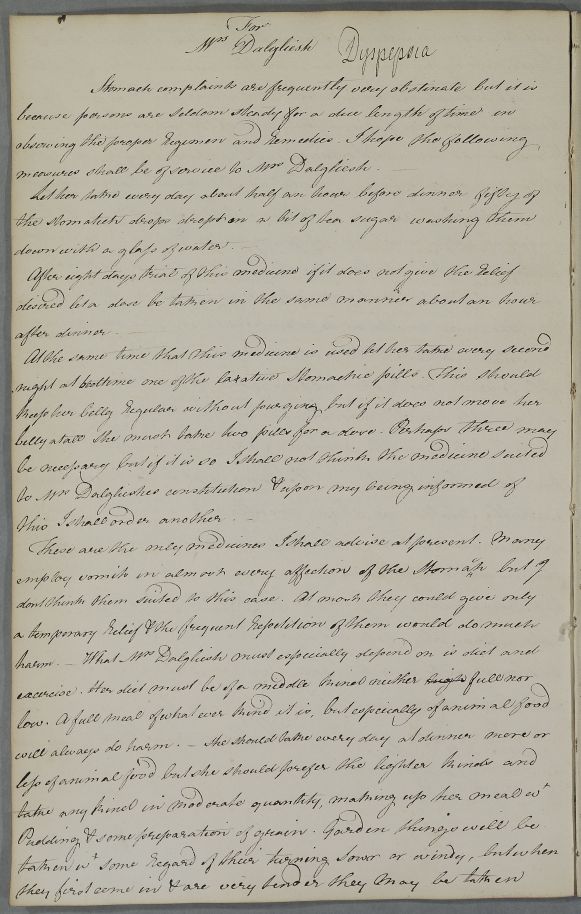 For
Mrs Dalgliesh Dyspepsia
Stomach complaints are frequently very obstinate but it is
because persons are seldom steady for a due length of time in
observing the proper Regimen and Remedies. I hope the following
measures shall be of service to Mrs Dalgliesh. —
Let her take every day about half an hour before dinner fifty of
the stomatick drops dropt on a bit of tea sugar washing them
down with a glass of water. —
After eight days trial of this medicine if it does not give the relief
desired let a dose be taken in the same manner about an hour
after dinner. —
At the same time that this medicine is used let her take every second
night at bedtime one of the laxative Stomachic pills. This should
keep her belly Regular without purging but if it does not move her
belly at all she must take two pills for a dose. Perhaps three may
be necessary but if it is so I shall not think the medicine suited
to Mrs Dalglieshes constitution & upon my being informed of
this I shall order another. —
These are the only medicines I shall advise at present. Many
employ vomits in almost every affection of the Stomach but I
dont think them suited to this case. At most they could give only
a temporary Relief & the frequent Repetition of them would do much
harm. — What Mrs Dalgliesh must especially depend on is diet and
excercise. Her diet must be of a middle kind neither full nor
low. A full meal of what ever kind it is, but especially of animal food
will always do harm. — She should take every day at dinner more or
less of animal food but she should prefer the lighter kinds and
take any kind in moderate quantity, making up her meal wt
Pudding & some preparation of grain. Garden things will be
taken wt some Regard of their turning sowr or windy, but when
they first come in & are very tender they may be taken